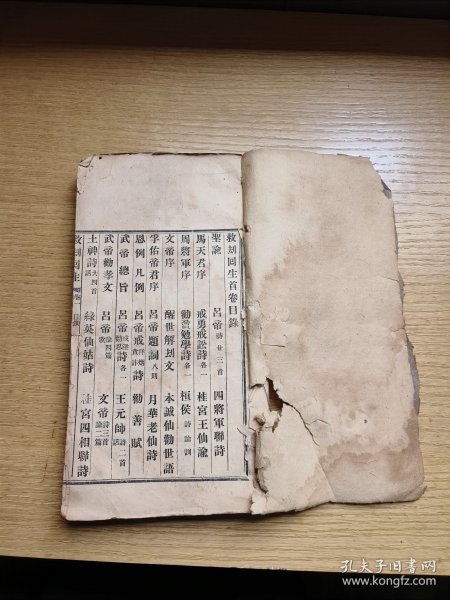 救刦回生首卷目錄
聖諭 呂帝詩廿三首 四將軍聯詩
馬天君序 戒勇戒訟詩各一 桂宮王仙諭
周將軍序 勸農勉學詩各一 桓侯詩諭訓
文帝序 醒世解刦文 永誠仙勸世語
孚佑帝君序 呂帝題詞八則 月華老仙詩
恩例凡例 呂帝戒洋烟貪訐詩 勸善賦
武帝總旨 呂帝戒淫勸忍詩各一 王元帥詩二首
武帝勸孝文 呂帝詩四首 文帝詩三首論二篇
土神詩六四首話 綠英仙姑詩 桂宮四相聯詩
救刦回生 首卷 目錄
孔夫子旧书网
www.kongfz.com